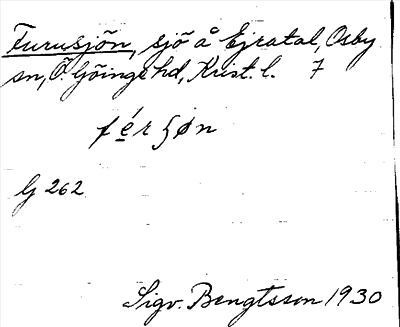 Furusjön, sjö å Ejratal, Osby
sn, Ö. Göinge hd, Krist. l. 7
férʃøn
G 262
Sigv. Bengtsson 1930